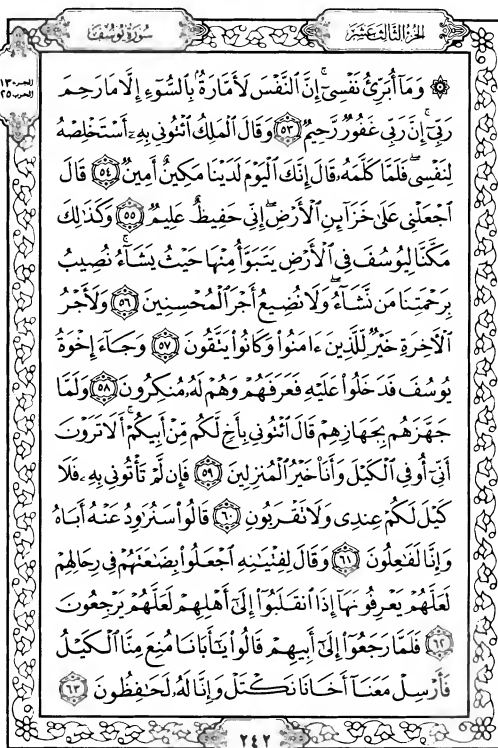 سُورَةُ يُوسُفَ
الجُزءُ الثَّالِثَ عَشَرَ
الجزء ١٣
الحزب ٢٥
۞ وَمَآ أُبَرِّئُ نَفْسِيٓۚ إِنَّ ٱلنَّفْسَ لَأَمَّارَةُۢ بِٱلسُّوٓءِ إِلَّا مَا رَحِمَ
رَبِّيٓۚ إِنَّ رَبِّي غَفُورٌ رَّحِيمٌ ٥٣ وَقَالَ ٱلْمَلِكُ ٱئْتُونِي بِهِۦٓ أَسْتَخْلِصْهُ
لِنَفْسِيۖ فَلَمَّا كَلَّمَهُۥ قَالَ إِنَّكَ ٱلْيَوْمَ لَدَيْنَا مَكِينٌ أَمِينٌ ٥٤ قَالَ
ٱجْعَلْنِي عَلَىٰ خَزَآئِنِ ٱلْأَرْضِۖ إِنِّي حَفِيظٌ عَلِيمٌ ٥٥ وَكَذَٰلِكَ
مَكَّنَّا لِيُوسُفَ فِي ٱلْأَرْضِ يَتَبَوَّأُ مِنْهَا حَيْثُ يَشَآءُۚ نُصِيبُ
بِرَحْمَتِنَا مَن نَّشَآءُۖ وَلَا نُضِيعُ أَجْرَ ٱلْمُحْسِنِينَ ٥٦ وَلَأَجْرُ
ٱلْأَخِرَةِ خَيْرٌ لِّلَّذِينَ ءَامَنُوا۟ وَكَانُوا۟ يَتَّقُونَ ٥٧ وَجَآءَ إِخْوَةُ
يُوسُفَ فَدَخَلُوا۟ عَلَيْهِ فَعَرَفَهُمْ وَهُمْ لَهُۥ مُنكِرُونَ ٥٨ وَلَمَّا
جَهَّزَهُم بِجَهَازِهِمْ قَالَ ٱئْتُونِي بِأَخٍ لَّكُم مِّنْ أَبِيكُمْۚ أَلَا تَرَوْنَ
أَنِّيٓ أُوفِي ٱلْكَيْلَ وَأَنَا۠ خَيْرُ ٱلْمُنزِلِينَ ٥٩ فَإِن لَّمْ تَأْتُونِي بِهِۦ فَلَا
كَيْلَ لَكُمْ عِندِي وَلَا تَقْرَبُونِ ٦٠ قَالُوا۟ سَنُرَٰوِدُ عَنْهُ أَبَاهُ
وَإِنَّا لَفَٰعِلُونَ ٦١ وَقَالَ لِفِتْيَٰنِهِ ٱجْعَلُوا۟ بِضَٰعَتَهُمْ فِي رِحَالِهِمْ
لَعَلَّهُمْ يَعْرِفُونَهَآ إِذَا ٱنقَلَبُوٓا۟ إِلَىٰٓ أَهْلِهِمْ لَعَلَّهُمْ يَرْجِعُونَ
٦٢ فَلَمَّا رَجَعُوٓا۟ إِلَىٰٓ أَبِيهِمْ قَالُوا۟ يَٰٓأَبَانَا مُنِعَ مِنَّا ٱلْكَيْلُ
فَأَرْسِلْ مَعَنَآ أَخَانَا نَكْتَلْ وَإِنَّا لَهُۥ لَحَٰفِظُونَ ٦٣
٢٤٢